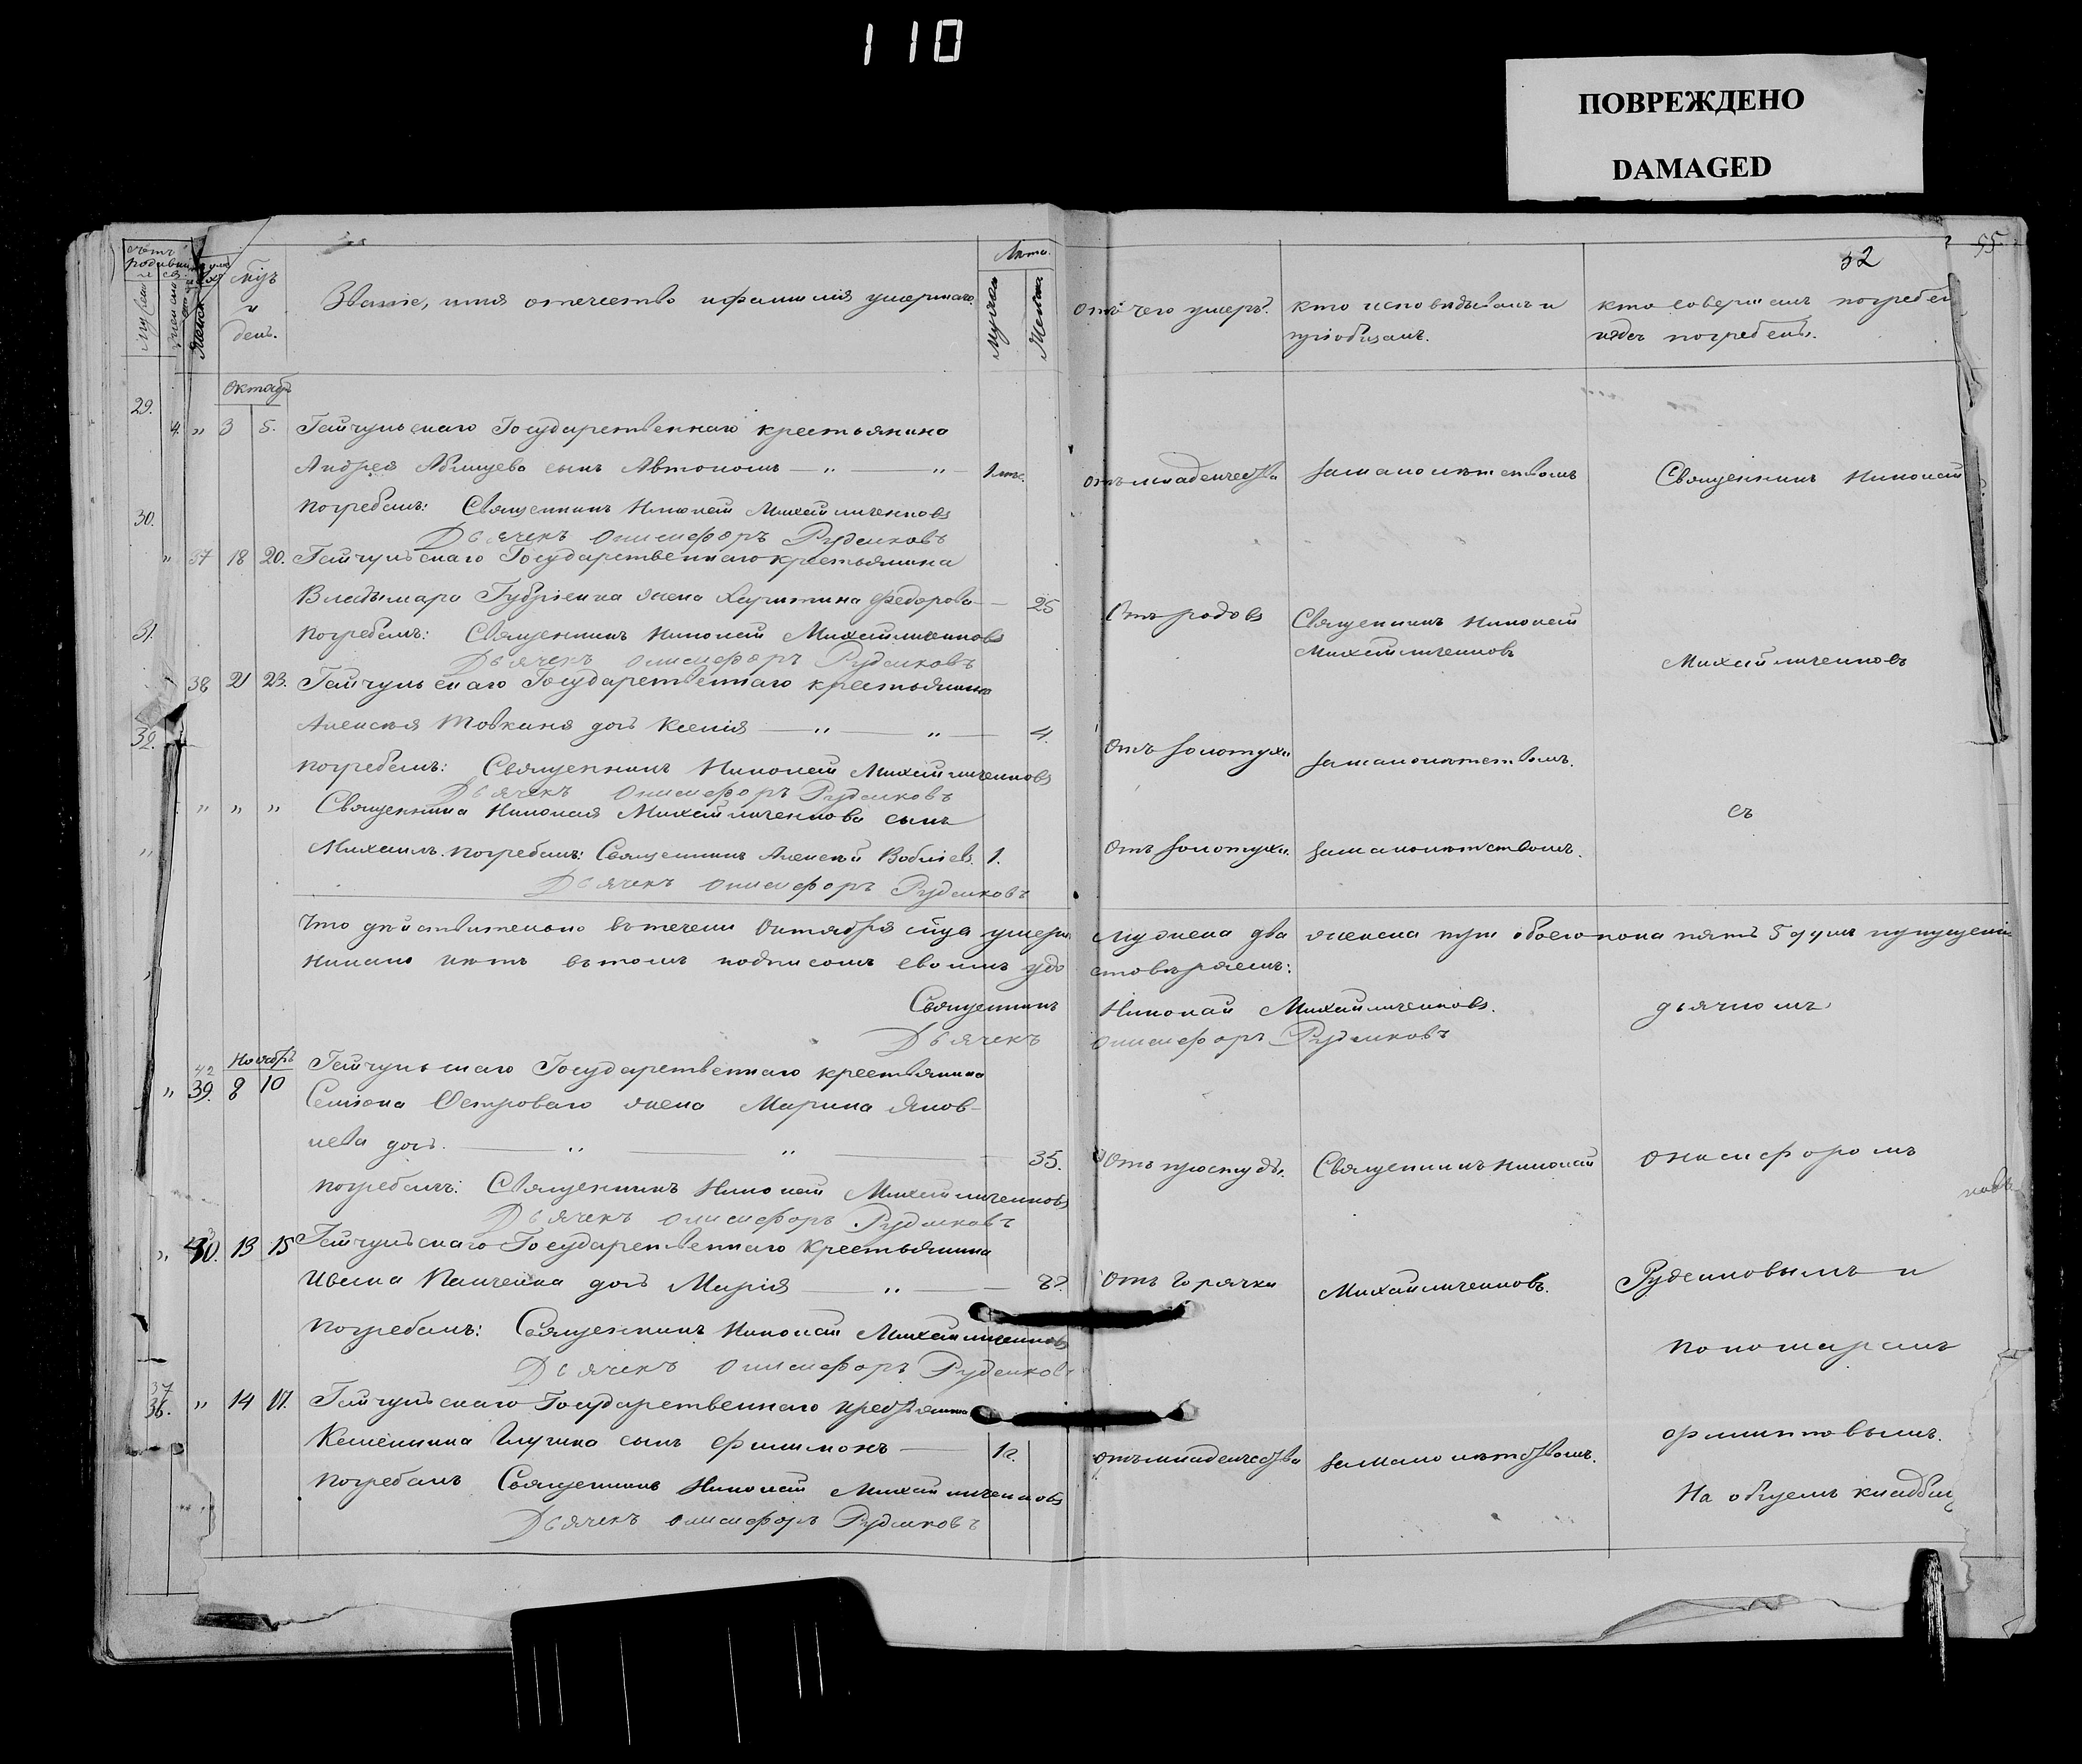 110
ПОВРЕЖДЕНО
DAMAGED
55
52
Мѣсяцъ и день.
Званіе, имя отечество и фамилія умершаго.
Лѣта.
Мужеск
Женск
Отъ чего умеръ?
кто исповѣдывалъ и пріобщалъ.
кто совершалъ погребен
и гдѣ погребенъ.
Октябрь
29.
4. " 3 5. Гайчульскаго Государственнаго крестьянина
Андрея сынъ Автономъ — " — " —
Отъ младенчества
за малолѣтствомъ
Священникъ Николай
Погребалъ: Священникъ Николай Михайличенковъ
30.
Дьячекъ Онисифоръ Руденковъ
" 37 18 20. Гайчульскаго Государственнаго крестьянина
Владымара Губріенка жена Харитина Федорова — 25
Отъ родовъ
Священникъ Николай
Михайличенковъ
31.
Погребалъ: Священникъ Николай Михайличенковъ
Дьячекъ Онисифоръ Руденковъ
Михайличенковъ
38 21 23. Гайчульскаго Государственнаго крестьянина
Алексѣя Товкиня дочь Ксенія — " — " — 4.
Отъ золотухи
за малолѣтствомъ.
32.
Погребалъ: Священникъ Николай Михайличенковъ
Дьячекъ Онисифоръ Руденковъ
съ
" " " Священника Николая Михайличенкова сынъ
Михаилъ. погребалъ: Священникъ Алексѣй 1.
Отъ золотухи.
за малолѣтствомъ.
Дьячекъ Онисифоръ Руденковъ
Что дѣйствительно въ теченіи Октября мца умерло мужеска два женска три обоего пола пять 5 душъ
никого нѣтъ въ томъ подписомъ своимъ удостовѣряемъ:
Священникъ Николай Михайличенковъ.
дьячкомъ
Дьячекъ Онисифоръ Руденковъ
Ноябрь
42
" 39. 8 10 Гайчульскаго Государственнаго крестьянина
Семіона Островаго жена Марина Яков-
лева дочь. — " — " — 35.
Отъ простуды.
Священникъ Николай
Онисифоромъ
Погребалъ: Священникъ Николай Михайличенковъ
Дьячекъ Онисифоръ Руденковъ
" 40. 13 15 Гайчульскаго Государственнаго крестьянина
Ивана Панченка дочь Марія — " —
Отъ горячки
Михайличенковъ.
Руденковымъ и
Погребалъ: Священникъ Николай Михайличенковъ
Пономаремъ
Дьячекъ Онисифоръ Руденковъ
37
36. " 14 17. Гайчульскаго Государственнаго крестьянина
сынъ Филимонъ —
отъ младенчества
за малолѣтствомъ.
Филипповымъ.
Погребалъ Священникъ Николай Михайличенковъ
На общемъ кладбищ
Дьячекъ Онисифоръ Руденковъ